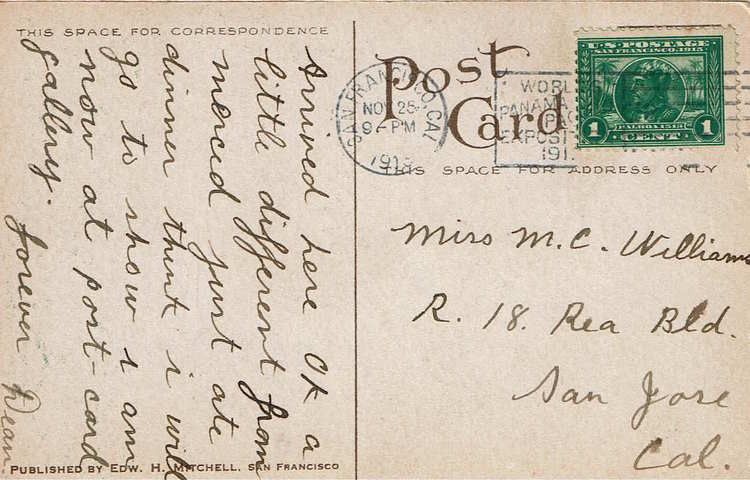 THIS SPACE FOR CORRESPONDENCE
Arrived here Ok a
little different from
merced just ate
dinner think i will
go to show i am
now at post-card
gallery.
forever Dean
PUBLISHED BY EDW. H. MITCHELL, SAN FRANCISCO
Post
Card
SAN FRANCISCO, CAL.
NOV 25
9-PM
1913
WORL
PANAMA
PAC
EXPOSIT
191
U.S. POSTAGE
SAN FRANCISCO 1915
BALBOA 1513
1 CENT 1
THIS SPACE FOR ADDRESS ONLY
Miss M.C. Williams
R. 18. Rea Bld.
San Jose
Cal.